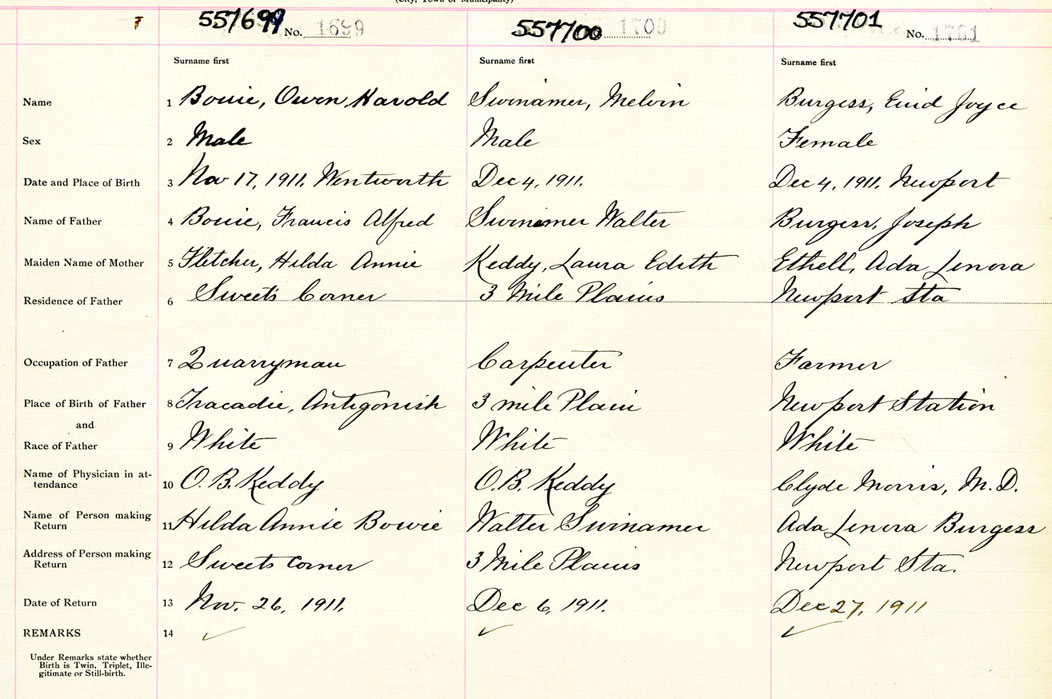 (City, Town or Municipality)
7 557699 No. 1699 557700 1700 557701 No. 1701
Surname first Surname first Surname first
Name 1 Bowie, Owen Harold Swinamer, Melvin Burgess, Enid Joyce
Sex 2 Male Male Female
Date and Place of Birth 3 Nov 17, 1911. Wentworth Dec 4, 1911. Dec 4, 1911. Newport
Name of Father 4 Bowie, Francis Alfred Swinamer Walter Burgess, Joseph
Maiden Name of Mother 5 Fletcher, Hilda Annie Keddy, Laura Edith Ethell, Ada Lenora
Residence of Father 6 Sweets Corner 3 Mile Plains Newport Sta
Occupation of Father 7 Quarryman Carpenter Farmer
Place of Birth of Father 8 Tracadie, Antigonish 3 mile Plain Newport Station
and
Race of Father 9 White White White
Name of Physician in at-
tendance 10 O.B. Keddy O.B. Keddy Clyde Morris, M.D.
Name of Person making
Return 11 Hilda Annie Bowie Walter Swinamer Ada Lenora Burgess
Address of Person making
Return 12 Sweets Corner 3 Mile Plains Newport Sta.
Date of Return 13 Nov. 26, 1911. Dec 6, 1911. Dec 27, 1911
REMARKS 14 ✓ ✓ ✓
Under Remarks state whether
Birth is Twin, Triplet, Ille-
gitimate or Still-birth.